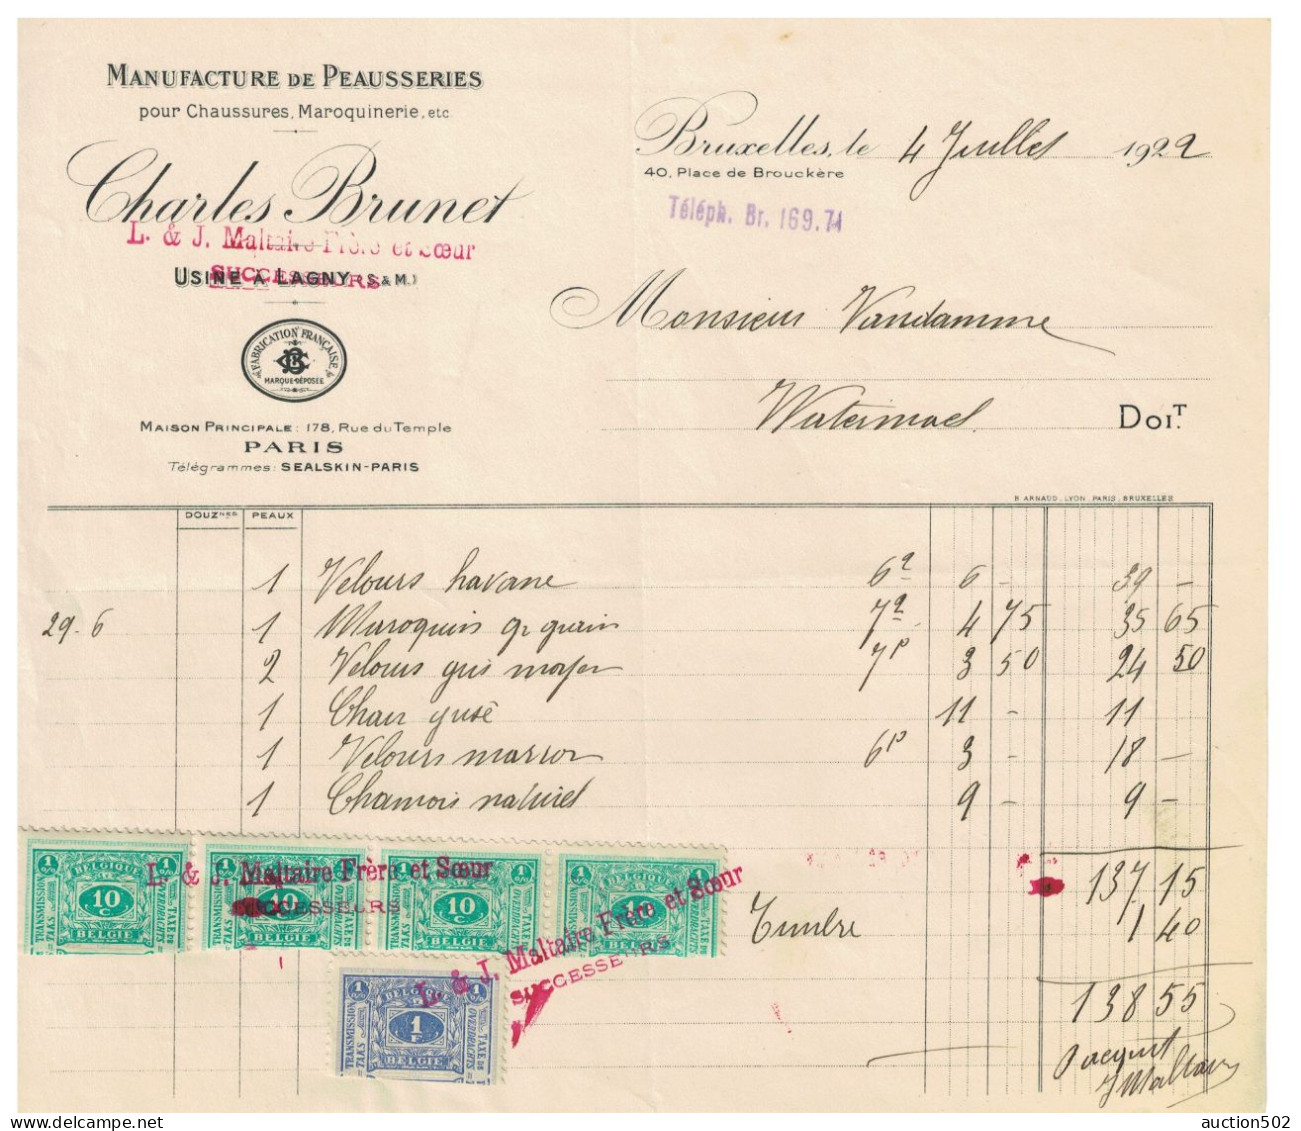 MANUFACTURE DE PEAUSSERIES
pour Chaussures, Maroquinerie, etc
Charles Brunet
L. & J. Maltaire Frère et Sœur
SUCCESSEURS
USINE A LAGNY (S. & M.)
FABRICATION FRANÇAISE
MARQUE DÉPOSÉE
MAISON PRINCIPALE: 178, Rue du Temple
PARIS
Télégrammes: SEALSKIN-PARIS
Bruxelles, le 4 Juillet 1922
40, Place de Brouckère
Téléph. Br. 169.74
Monsieur Vandamme
Watermael DOIT.
R. ARNAUD. LYON. PARIS. BRUXELLES
DOUZNES PEAUX
1 Velours havane 6 - 39 -
29.6 1 Maroquin gr grain 4 75 35 65
2 Velours gris moyen 7p 3 50 24 50
1 11 - 11
1 Velours marron 6p 3 - 18 -
1 Chamois naturel 9 - 9 -
137 15
Timbre 1 40
138 55
Pacquit
J Maltaire
L. & J. Maltaire Frère et Sœur
SUCCESSEURS
L. & J. Maltaire Frère et Sœur
SUCCESSEURS
1 BELGIQUE 1
TRANSMISSION = TAKS
10 C
OVERDRACHTS = TAXE DE
BELGIE
1 BELGIQUE 1
TRANSMISSION = TAKS
10
OVERDRACHTS = TAXE DE
BELGIE
1 BELGIQUE 1
TRANSMISSION = TAKS
10 C
OVERDRACHTS = TAXE DE
BELGIE
1 BELGIQUE 1
TRANSMISSION = TAKS
10 C
OVERDRACHTS = TAXE DE
BELGIE
1 BELGIQUE 1
TRANSMISSION = TAKS
1 F
OVERDRACHTS = TAXE DE
BELGIE
auction502